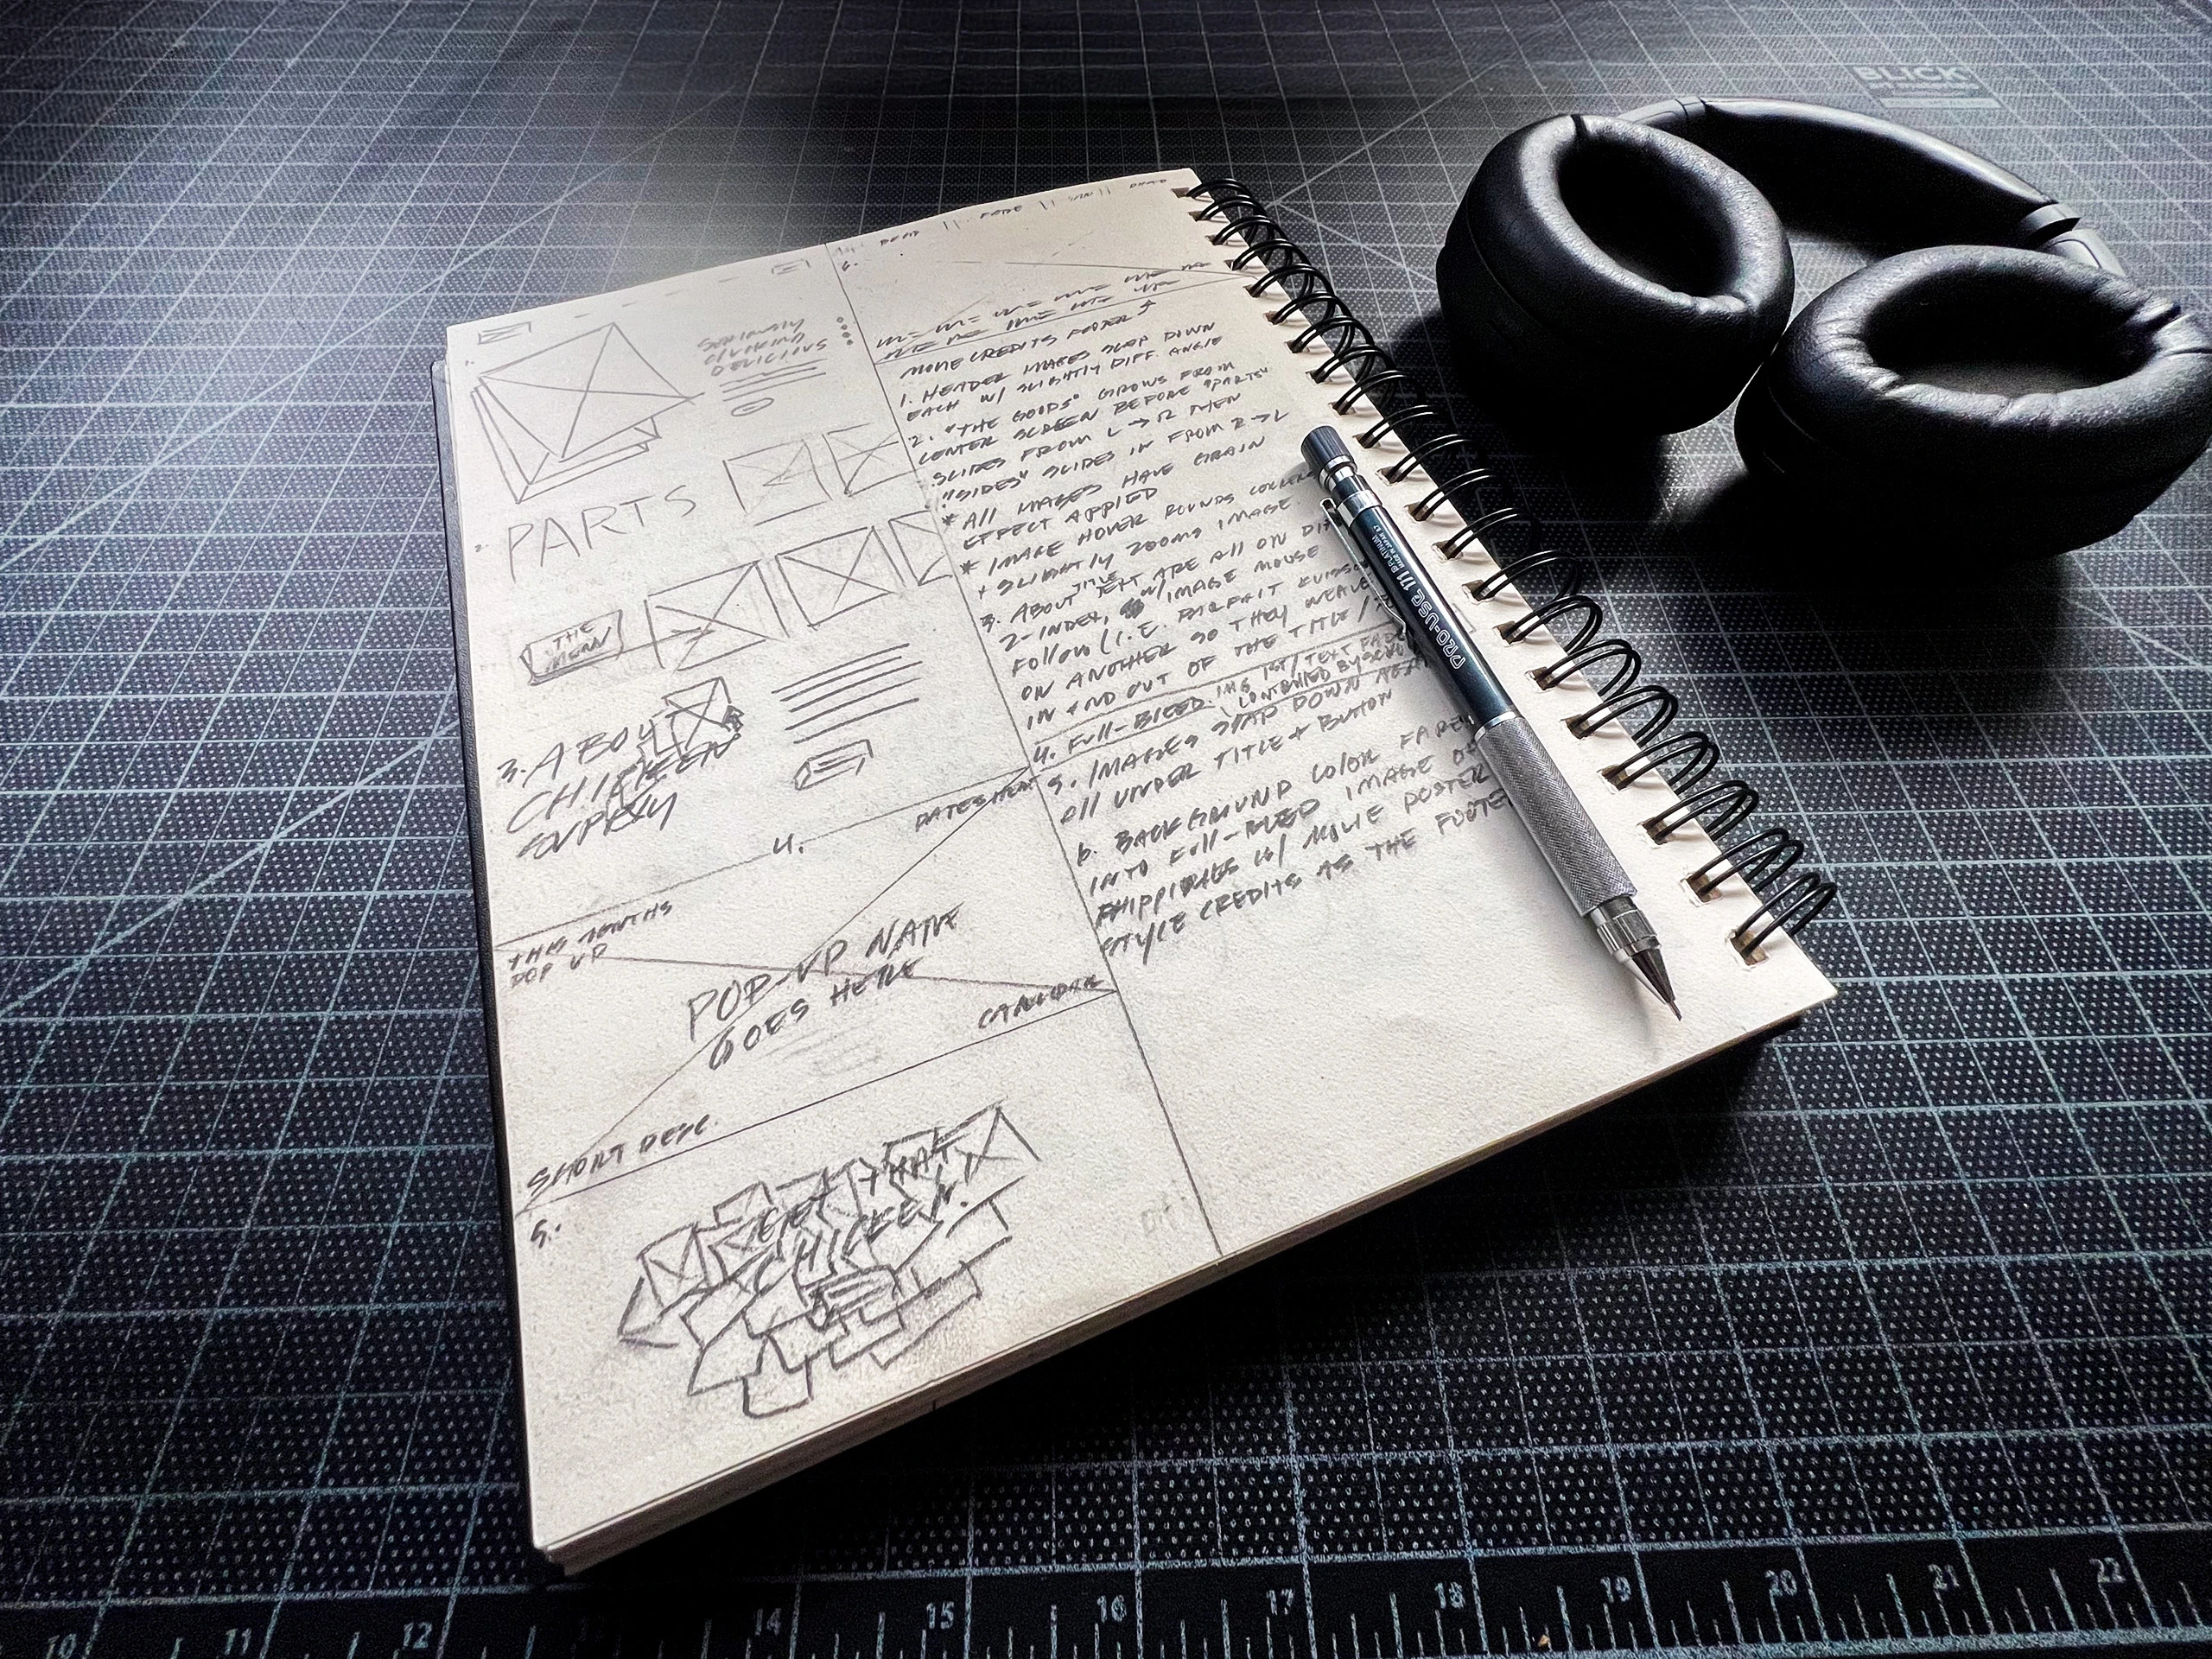 SERIOUSLY
CLUCKING
DELICIOUS
PARTS
THE
MENU
3. ABOUT
CHICKEN
SUPPLY
4.
DATES HERE
THIS MONTHS
POP UP
POP-UP NAME
GOES HERE
CALENDAR
SHORT DESC.
5.
GET THAT
CHICKEN!
6.
MOVIE CREDITS FOOTER
1. HEADER IMAGES SLAP DOWN
EACH W/ SLIGHTLY DIFF. ANGLE
2. "THE GOODS" GROWS FROM
CENTER SCREEN BEFORE "PARTS"
SLIDES FROM L → R THEN
"SIDES" SLIDES IN FROM R → L
* All IMAGES HAVE GRAIN
EFFECT APPLIED
* IMAGE HOVER ROUNDS CORNERS
+ SLIGHTLY ZOOMS IMAGE.
3. ABOUT TITLE TEXT ARE All ON
Z-INDEX, W/ IMAGE MOUSE
FOLLOW (I.E. PARFAIT
ON ANOTHER SO THEY WEAVE
IN AND OUT OF THE TITLE /
4. FULL-BLEED. IMG 1ST / TEXT
CONTROLLED BY
5. IMAGES SLAP DOWN
All UNDER TITLE + BUTTON
6. BACKGROUND COLOR FADES
INTO FULL-BLEED IMAGE OF
PHIPPINES W/ MOVIE POSTER
STYLE CREDITS AS THE FOOTER
PRO-USE 171
PLATINUM
MADE IN JAPAN
BLICK
10 11 12 13 14 15 16 17 18 19 20 21 22